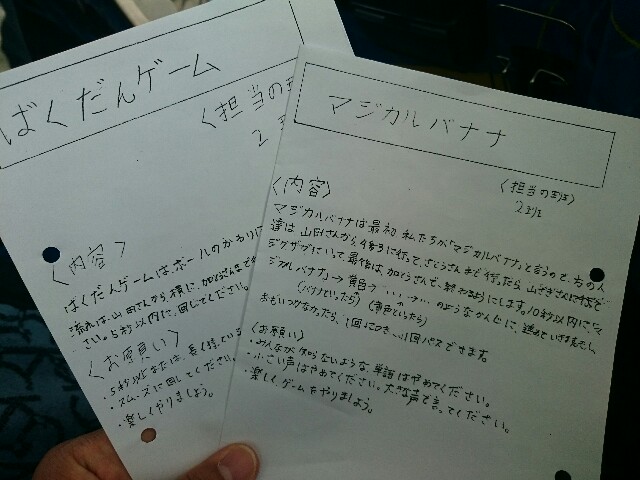 ばくだんゲーム
〈担当の班
2
〈内容〉
ばくだんゲームは、ボールのかわりに
流れは、山田さんから、横に、加とうさんまで
さい。5秒以内に、回してください。
〈お願い〉
・5秒以上または、長く持っている
・スムーズに回してください。
・楽しくやりましょう。
マジカルバナナ
〈担当の班〉
2班
〈内容〉
マジカルバナナは最初、私たちが「マジカルバナナ」と言うので、
達は山田さんから
ジグザグにいって、最後は、加とうさんで、終わりにします。10秒以内に、「マ
ジカルバナナ」→黄色→…→…のようなかんじに、進めていきましょう。
(バナナといったら) (黄色といったら)
おもいつかなかったら、1回につき、1回パスできます。
〈お願い〉
・みんなが知らないような単語はやめてください。
・小さい声はやめてください。大きな声で言ってください。
・楽しくゲームをやりましょう。